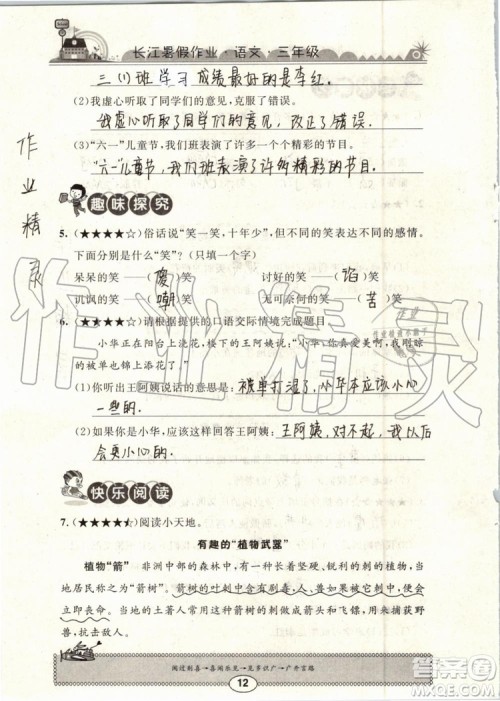 长江暑假作业·语文·三年级
三(1)班学习成绩最好的是李红。
(2)我虚心听取了同学们的意见,克服了错误。
我虚心听取了同学们的意见,改正了错误。
(3)“六一”儿童节,我们班表演了许多一个个精彩的节目。
“六一”儿童节,我们班表演了许多精彩的节目。
作业精灵
趣味探究
5.(★★★★)俗话说“笑一笑,十年少”,但不同的笑表达不同的感情。
下面分别是什么“笑”?(只填一个字)
呆呆的笑——(傻)笑 讨好的笑——(谄)笑
讥讽的笑——(嘲)笑 无可奈何的笑——(苦)笑
6.(★★★★)请根据提供的口语交际情境完成题目。
小华正在阳台上浇花,楼下的王阿姨说:“小华,你真爱美啊!我刚晾
的被单也锦上添花了。”
(1)你听出王阿姨说话的意思是:被单打湿了,小华本应该小心
一些的。
(2)如果你是小华,应该这样回答王阿姨:王阿姨,对不起,我以后
会更小心的。
快乐阅读
7.(★★★★☆)阅读小天地。
有趣的“植物武器”
植物“箭” 非洲中部的森林中,有一种长着坚硬、锐利的刺的植物,当
地居民称之为“箭树”。箭树的叶刺中含有剧毒,人、兽如果被它刺中,便会
立即丧命。当地的土著人常用箭树的刺做成箭头和飞镖,用来捕获野
兽,抗击敌人。
闻过则喜→喜闻乐见→见多识广→广开言路
12
作业精灵
答案圈
MXQE.COM